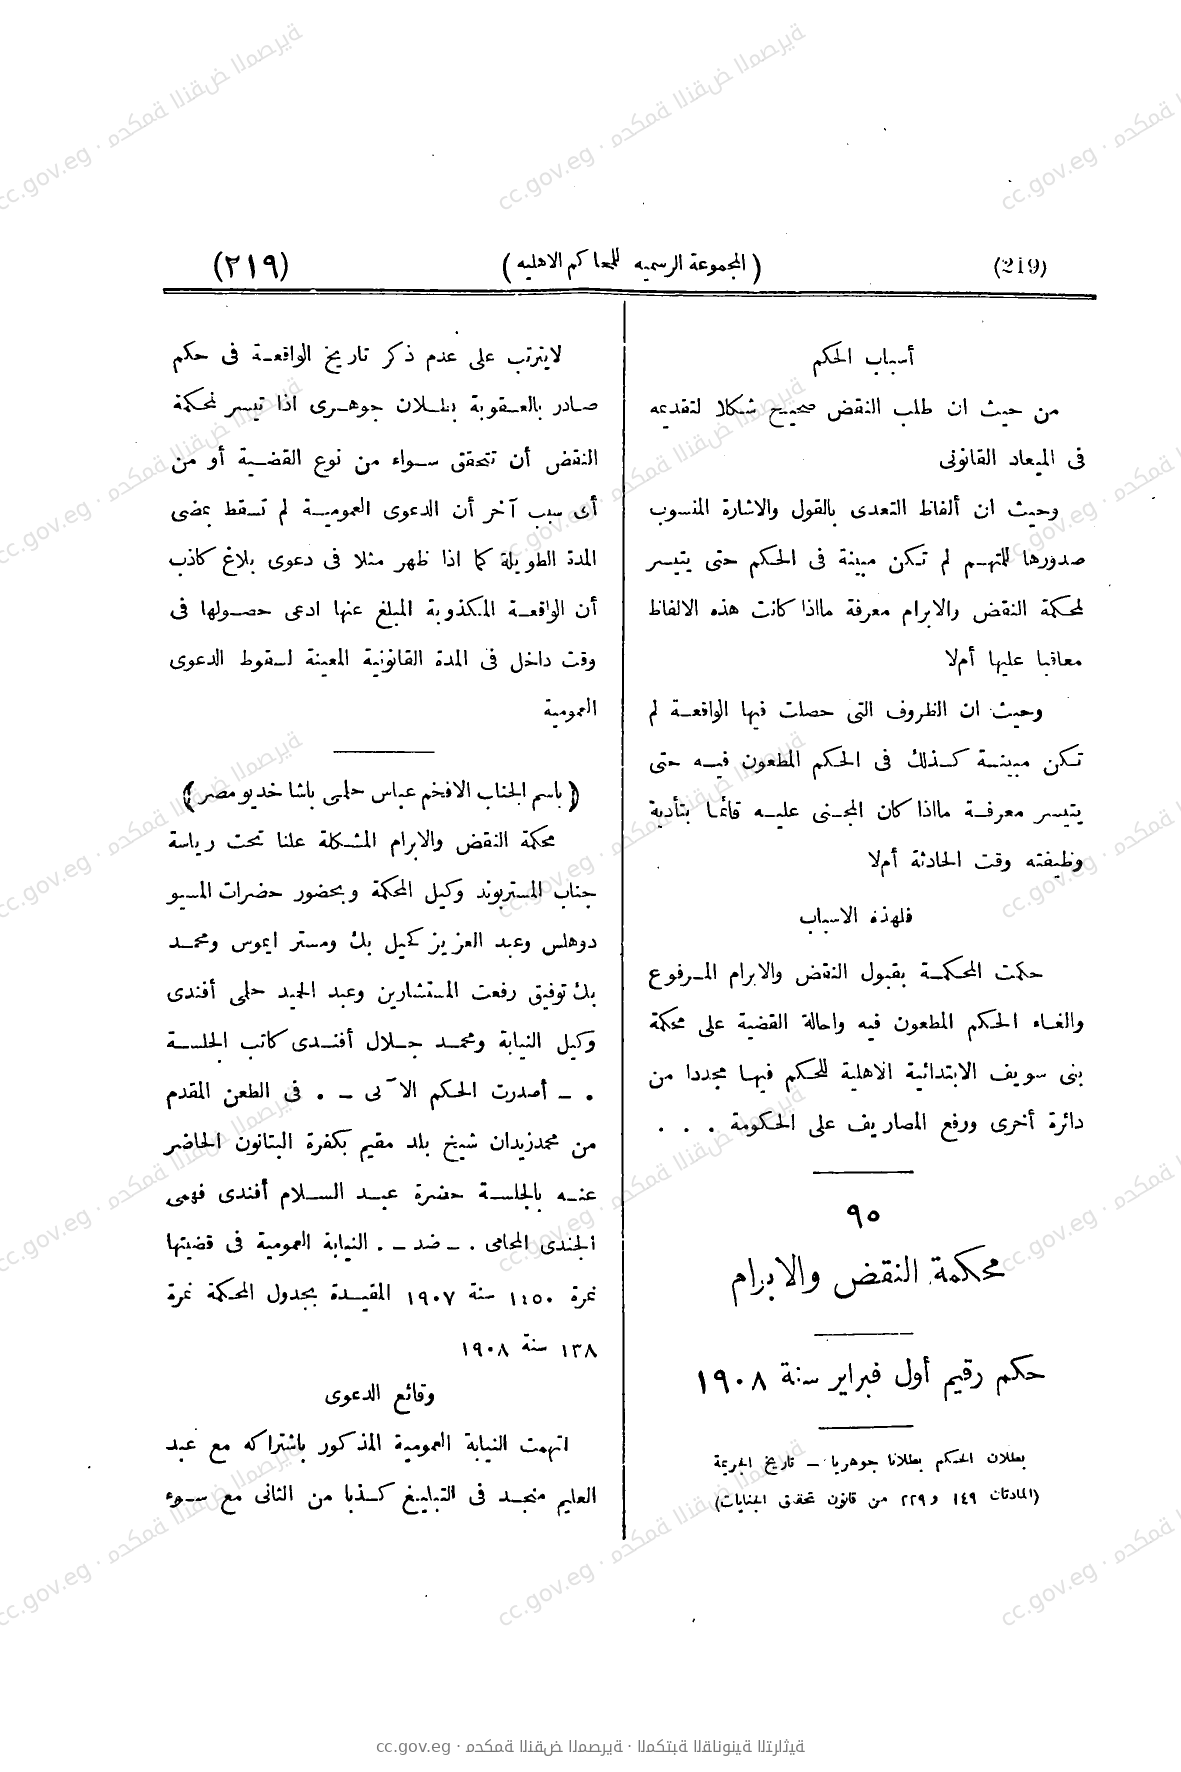 (219)
( المجموعة الرسميه للمحاكم الاهليه )
(٢١٩)
أسباب الحكم
من حيث ان طلب النقض صحيح شكلا لتقديمه
فى الميعاد القانونى
وحيث ان ألفاظ التعدى بالقول والاشارة المنسوب
صدورها للمتهم لم تكن مبينة فى الحكم حتى يتيسر
لمحكمة النقض والابرام معرفة مااذا كانت هذه الالفاظ
معاقبا عليها أم لا
وحيث ان الظروف التى حصلت فيها الواقعة لم
تكن مبينة كذلك فى الحكم المطعون فيه حتى
يتيسر معرفة مااذا كان المجنى عليه قائما بتأدية
وظيفته وقت الحادثة أم لا
فلهذه الاسباب
حكمت المحكمة بقبول النقض والابرام المرفوع
والغاء الحكم المطعون فيه واحالة القضية على محكمة
بنى سويف الابتدائية الاهلية للحكم فيها مجددا من
دائرة أخرى ورفع المصاريف على الحكومة . . .
٩٥
محكمة النقض والابرام
حكم رقيم أول فبراير سنة ١٩٠٨
بطلان الحكم بطلانا جوهريا – تاريخ الجريمة
(المادتان ١٤٩ و٢٢٩ من قانون تحقيق الجنايات)
لايترتب على عدم ذكر تاريخ الواقعة فى حكم
صادر بالعقوبة بطلان جوهرى اذا تيسر لمحكمة
النقض أن تتحقق سواء من نوع القضية أو من
أى سبب آخر أن الدعوى العمومية لم تسقط بمضى
المدة الطويلة كما اذا ظهر مثلا فى دعوى بلاغ كاذب
أن الواقعة المكذوبة المبلغ عنها ادعى حصولها فى
وقت داخل فى المدة القانونية المعينة لسقوط الدعوى
العمومية
( باسم الجناب الافخم عباس حلمى باشا خديو مصر )
محكمة النقض والابرام المشكلة علنا تحت رياسة
جناب المستربوند وكيل المحكمة وبحضور حضرات المسيو
دوهلس وعبد العزيز كحيل بك ومستر ايموس ومحمد
بك توفيق رفعت المستشارين وعبد الحميد حلمى أفندى
وكيل النيابة ومحمد جلال أفندى كاتب الجلسة
. – أصدرت الحكم الآتى – . فى الطعن المقدم
من محمد زيدان شيخ بلد مقيم بكفرة البتانون الحاضر
عنه بالجلسة حضرة عبد السلام أفندى فهمى
الجندى المحامى . – ضد – . النيابة العمومية فى قضيتها
نمرة ١٤٥٠ سنة ١٩٠٧ المقيدة بجدول المحكمة نمرة
١٣٨ سنة ١٩٠٨
وقائع الدعوى
اتهمت النيابة العمومية المذكور باشتراكه مع عبد
العليم منجد فى التبليغ كذبا من الثانى مع سوء
cc.gov.eg · محكمة النقض المصرية · المكتبة القانونية التراثية